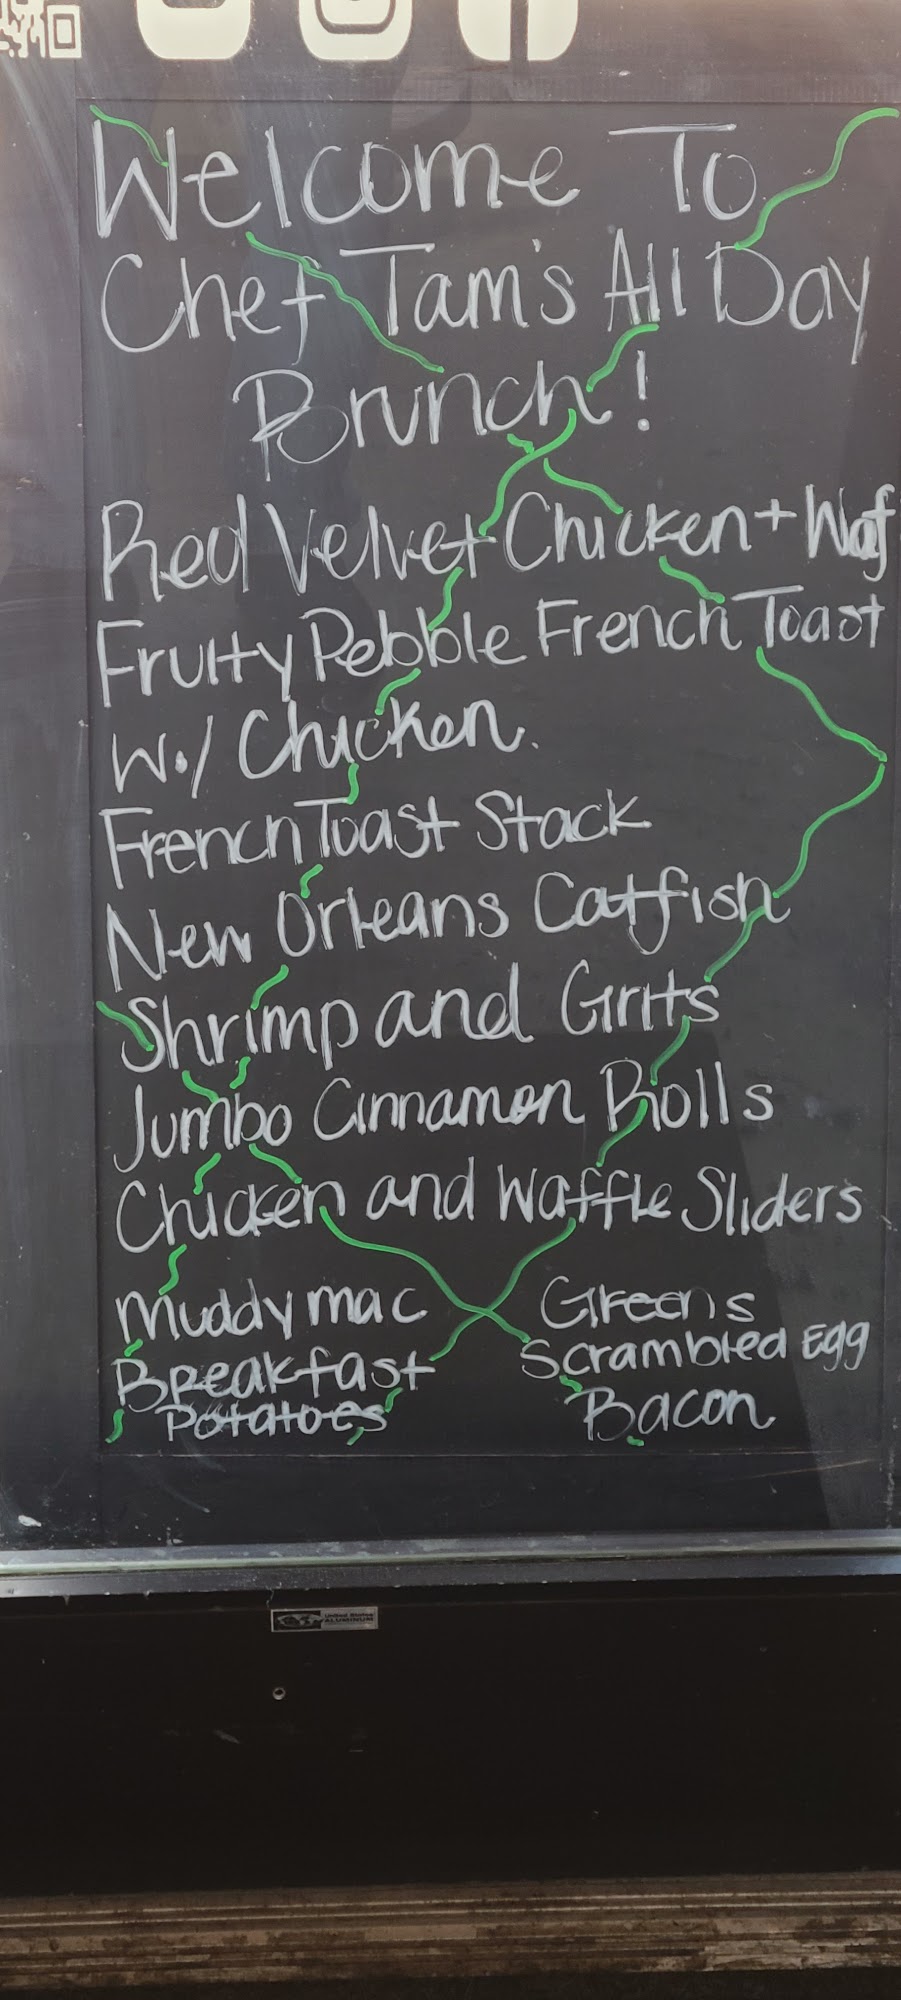 Welcome To
Chef Tam's All Day
Brunch!
Red Velvet Chicken + Waf
Fruity Pebble French Toast
W./ Chicken.
French Toast Stack
New Orleans Catfish
Shrimp and Grits
Jumbo Cinnamon Rolls
Chicken and Waffle Sliders
Muddy mac
Greens
Breakfast
Potatoes
Scrambled Egg
Bacon
United States
ALUMINUM